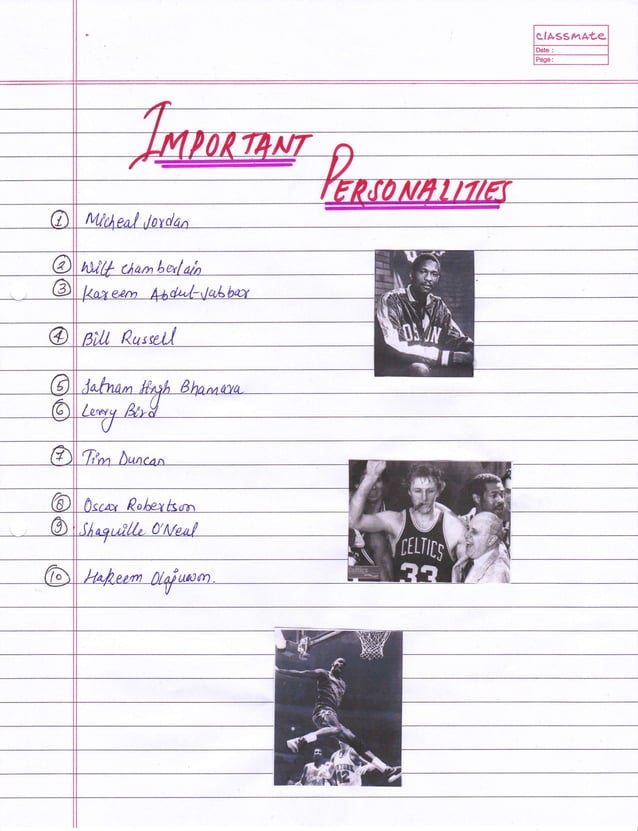 classmate
Date :
Page :
IMPORTANT
PERSONALITIES
1 Micheal Jordan
2 Wilt Chamberlain
3 Kareem Abdul-Jabbar
4 Bill Russell
5 Satnam Singh Bhamara
6 Lerry Bird
7 Tim Duncan
8 Oscar Robertson
9 Shaquille O'Neal
10 Hakeem Olajuwon.
CELTICS
33
12